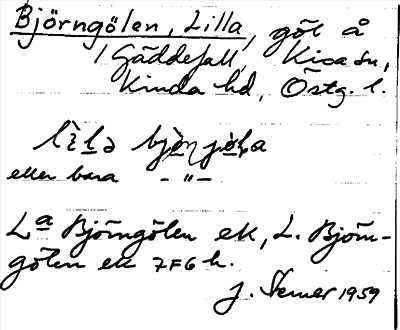 Björngölen, Lilla, göl å
/ Gäddefall, Kisa sn,
Kinda hd, Östg. l.
lìlə bjònjøḷa
eller bara – " –
La Björngölen ek, L. Björn-
gölen ek 7F6 h.
J. Stemer 1959